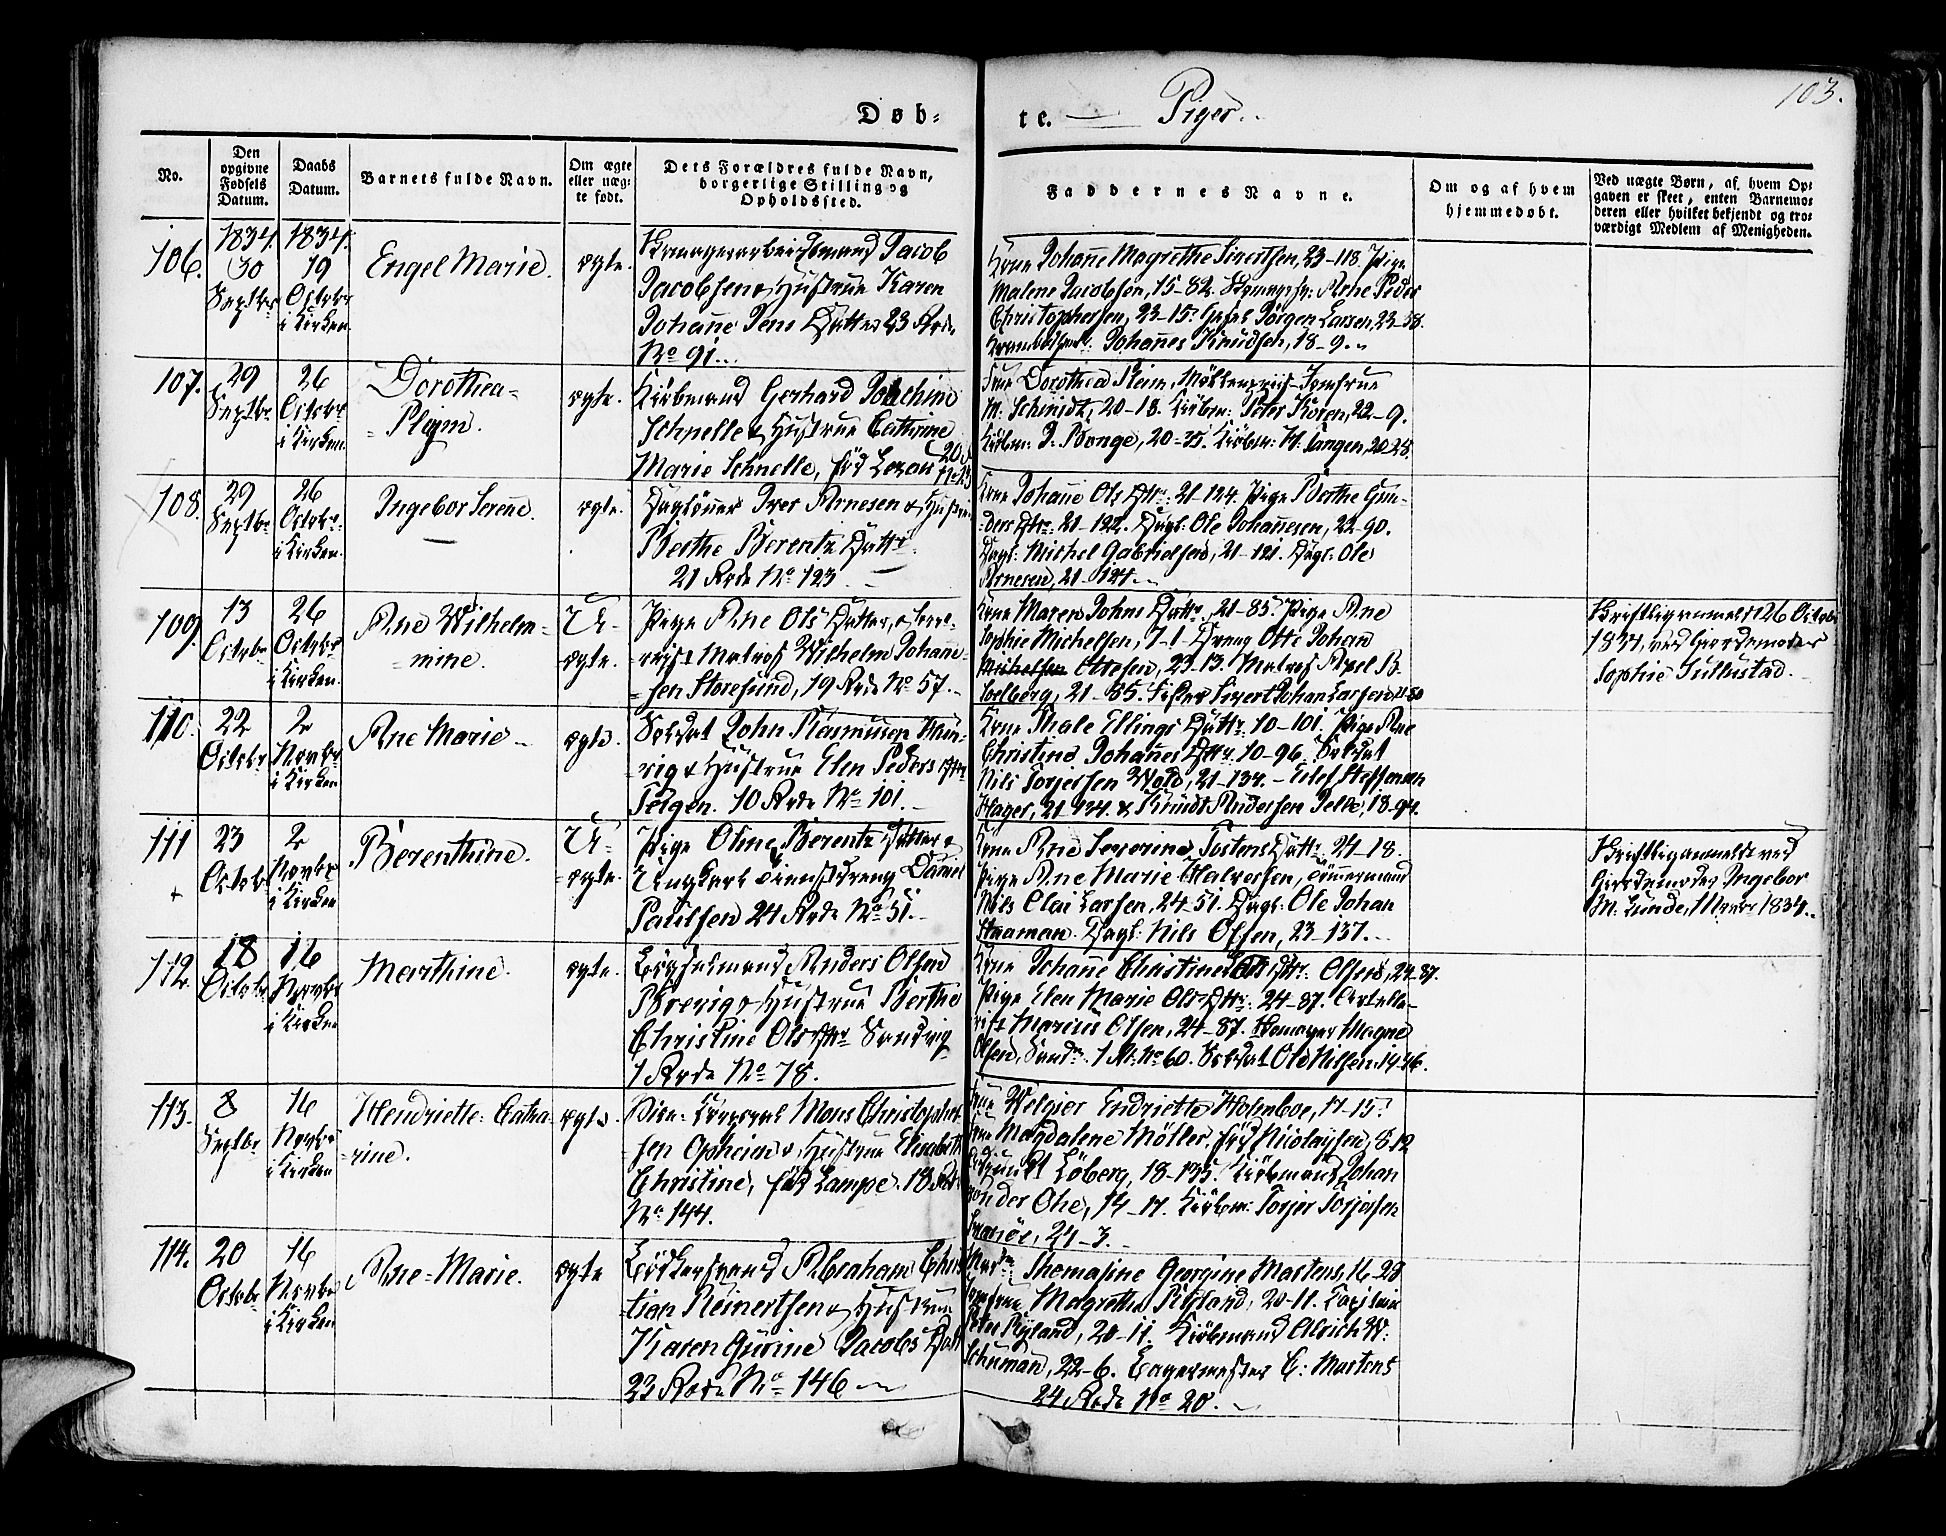 103.
Døb-te. Piger.
No.
Den opgivne Fødsels Datum.
Daabs Datum.
Barnets fulde Navn.
Om ægte eller uæg-te født.
Dets Forældres fulde Navn, borgerlige Stilling og Opholdssted.
Faddernes Navne.
Om og af hvem hjemmedøbt.
Ved uægte Børn, af hvem Op-
gaven er skeet, enten Barnemo-
deren eller hvilket bekjendt og tro-
værdigt Medlem af Menigheden.
106.
1834.
30
Septbr
1834.
19
Octobr
i Kirken
Engel Marie.
ægte.
Jacob
Jacobsen & Hustrue Karen
Johañe Jens Datter 23 Rode
No 91.
Kone Johañe Magrethe Sivertsen, 23-118. Pige
Malene Jacobsen, 15-82. Arne Peder
Christophersen, 23-15. Jørgen Larsen, 23-58.
Johañes Knudsen, 18-9.
107.
29
Septbr
26
Octobr
i Kirken.
Dorothea
=Plejm.
ægte.
Kiøbmand Gerhard Jochim
Schnelle & Hustrue Cathrine
Marie Schnelle, fød
Frue Dorothea Jomfrue
M: Schmidt, 20-18. Kiøbm: Peter Koren, 22-9.
Kiøbm: D. Bonge, 20-35. Kiøbm: H. 20-28.
108.
29
Septbr
26
Octobr
i Kirken.
Ingebor Serene.
ægte.
Dagløner Iver Arnesen & Hustrue
Berthe Berentz Datter
21 Rode No 123
Kone Johañe Ols Dttr: 21-124. Pige Berthe Gun-
ders Dtr. 21-122. Dagl: Ole Johañesen, 22-90.
Dagl: Michel Gabrielsen, 21-121. Dagl: Ole
Arnesen, 21-124.
109.
13
Octobr
26
Octobr
i Kirken.
Ane Wilhelm-
=mine.
U-
=ægte.
Pige Ane Ols Datter, &
Matros Wilhelm Johañe-
=sen Storesund, 19 Rode No 57.
Kone Maren Johns Dattr, 21-85. Pige Ane
Sophie Michelsen, 7-1. Dreng Otte Johan
Michelsen Ottesen, 23-13. Matros Axel B.
Solberg, 21-85. Fisker Sivert Johan Larsen 21-80
Skriftlig anmeldt 26 Octobr
1834, ved Giordemoder
Sophie Tullustad.
110.
22
Octobr
2
Novbr
i Kirken
Ane Marie
ægte.
Soldat John Rasmusen
& Hustrue Elen Peders Dttr
10 Rode No 101.
Kone Thale Ellings Dattr. 10-101. Pige Ane
Christine Johañes Dttr. 10-96. Soldat
Nils Torjersen Wold, 21-134. Steffensen
Hager, 21-134. & Knudt Andersen 18-94.
111
+
23
Octobr
2
Novbr
i Kirken
Berenthine.
U-
=ægte.
Pige Oline Berentz Datter &
Ungkarl Tienstdreng Daniel
Paulsen 24 Rode No 51.
Kone Ane Severine Tostens Dattr 24-18.
Pige Ane Marie Halvorsen, Tømermand
Nils Olai Larsen, 24-51. Dagl: Ole Johan
Staaman. Dagl: Nils Olsen, 23-137.
Skriftlig anmeldt ved
Giordemoder Ingebor
M: Lunde, 1 Novbr 1834.
112.
18
Octobr
16
Novbr
i Kirken
Marthine.
ægte.
Anders Olsen
Brevig & Hustrue Berthe
Christine Ols Dttr Sandvig
1 Rode No 78.
Kone Johañe Christine Olsen, 24-87.
Pige Elen Marie Ols Dttr: 24-87.
Marius Olsen, 24-87. Magne
Olsen, 1 R: No 60. Soldat Ole Nilsen 14-46.
113.
8
Septbr
16
Novbr
i Kirken
Hendriette-Catha-
=rine.
ægte.
Mons Christopher-
sen Opheim & Hustrue Elisabeth
Christine, fød Lampe. 18 Rode
No 144.
Frue Welgier Endriette Holmboe, 17-15.
Frue Magdalene Møller, fød Nicolaysen, 8-12
Løberg, 18-135. Kiøbmand Johan
von der Ohe, 14-17. Kiøbm: Torjer Torjersen
21-3.
114.
20
Octobr
16
Novbr
i Kirken
Ane-Marie.
ægte
Bødkersvend Abraham Chris-
tian Reinertsen & Hustrue
Karen Gurine Jacobs Datt
23 Rode No 146
Thomasine Georgine Martens, 16-28
Jomfrue Magrethe Ryland, 20-11.
Peter Ryland, 20-11. Kiøbmand Olrich W:
Schuman, 22-6. Bagermester C: Martens
24 Rode No 20.